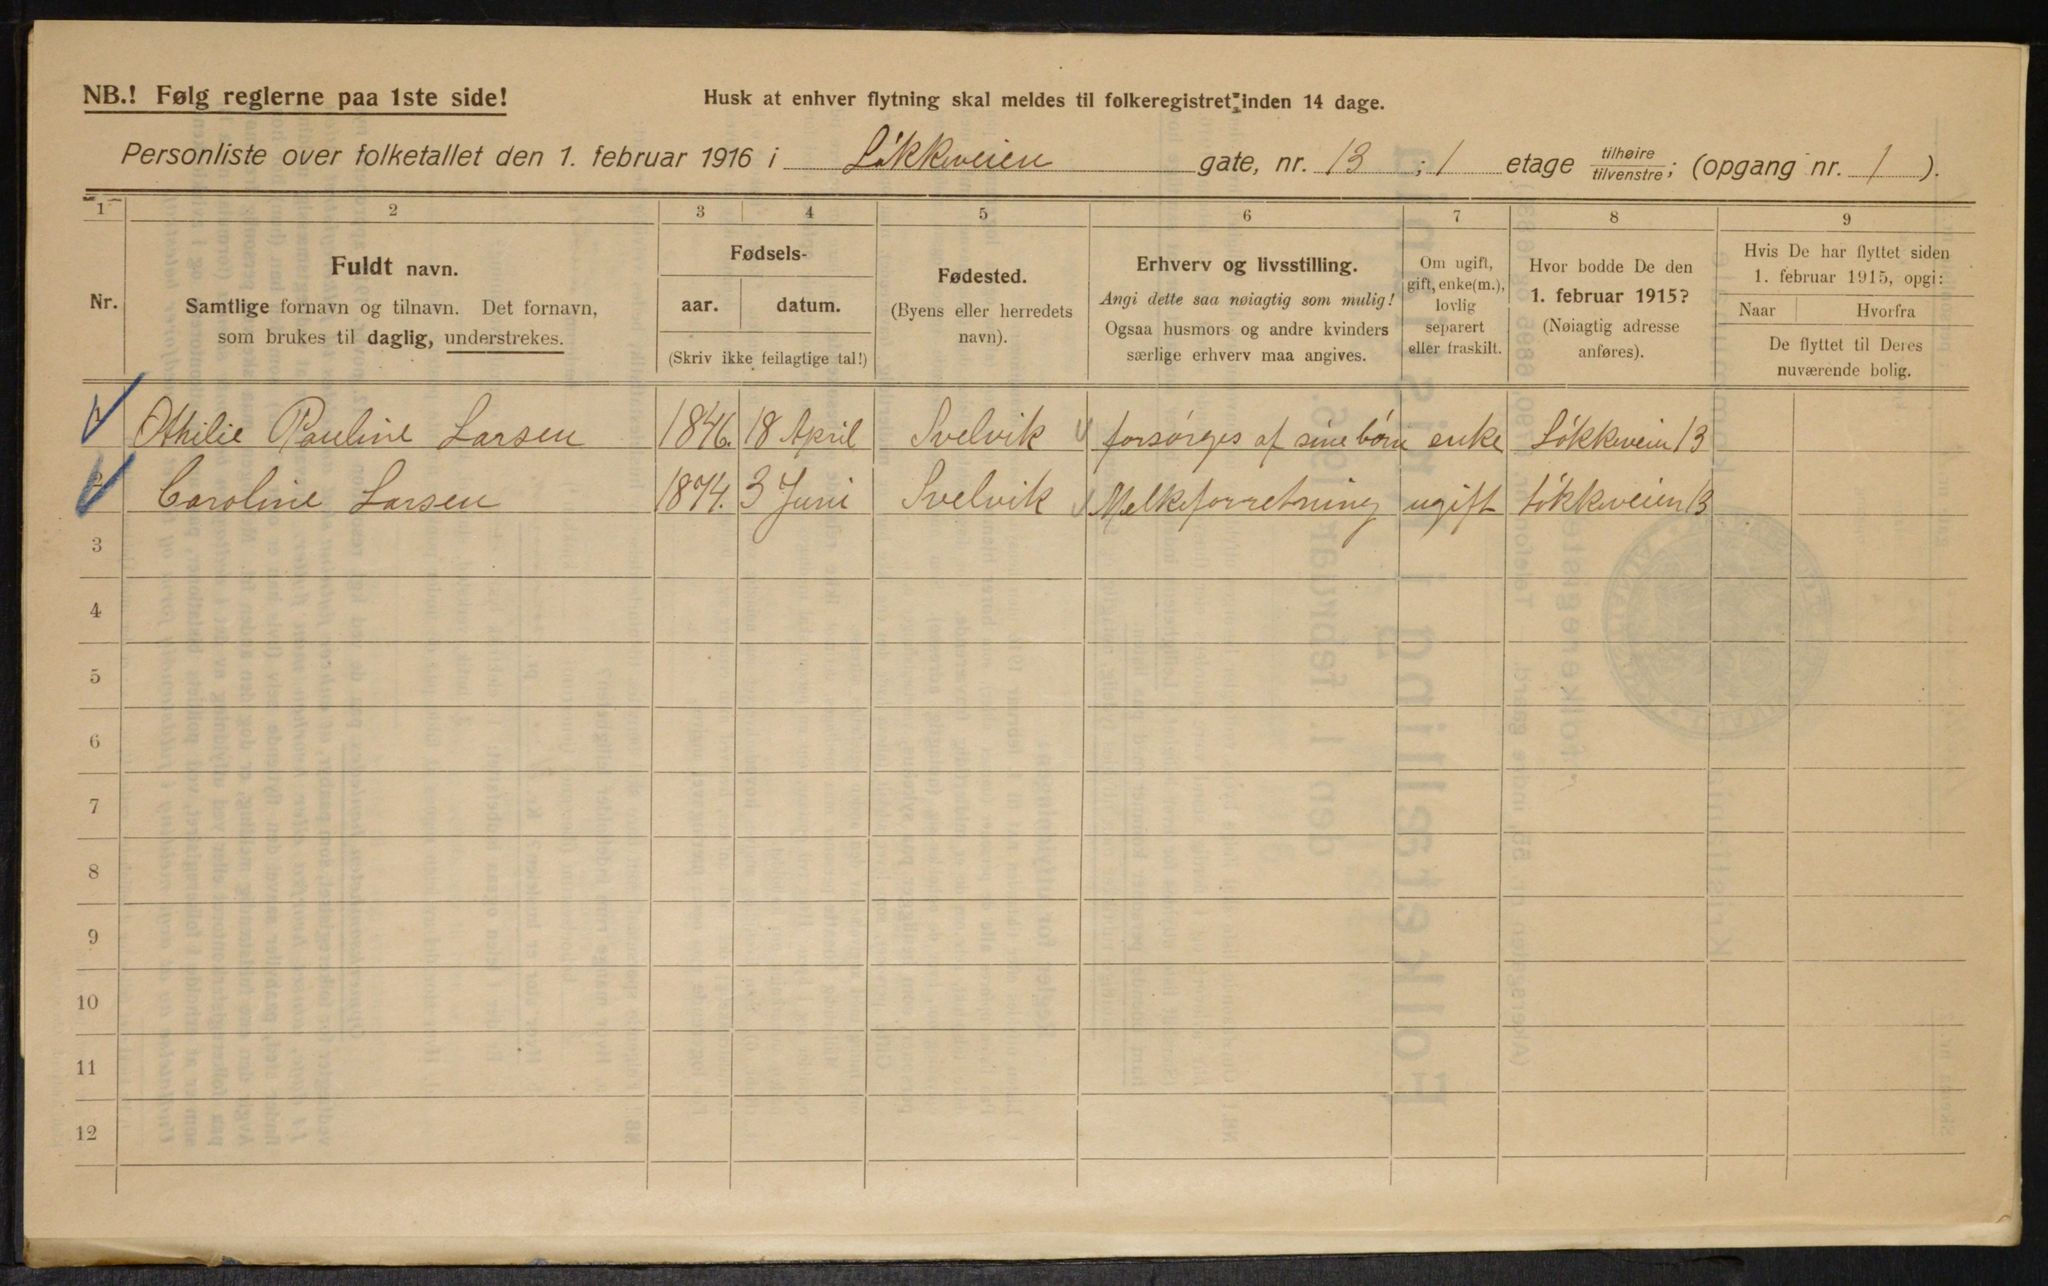 NB.! Følg reglerne paa 1ste side!
Husk at enhver flytning skal meldes til folkeregistret inden 14 dage.
Personliste over folketallet den 1. februar 1916 i Løkkeveien gate, nr. 13 ; 1 etage tilhøire/tilvenstre; (opgang nr. 1 ).
1 2 3 4 5 6 7 8 9
Nr.
Fuldt navn.
Samtlige fornavn og tilnavn. Det fornavn,
som brukes til daglig, understrekes.
Fødsels-
aar. datum.
(Skriv ikke feilagtige tal!)
Fødested.
(Byens eller herredets
navn).
Erhverv og livsstilling.
Angi dette saa nøiagtig som mulig!
Ogsaa husmors og andre kvinders
særlige erhverv maa angives.
Om ugift,
gift, enke(m.),
lovlig
separert
eller fraskilt.
Hvor bodde De den
1. februar 1915?
(Nøiagtig adresse
anføres).
Hvis De har flyttet siden
1. februar 1915, opgi:
Naar Hvorfra
De flyttet til Deres
nuværende bolig.
1 Othilie Pauline Larsen 1846. 18 April Svelvik forsørges af sine børn enke Løkkeveien 13
2 Caroline Larsen 1874. 3 Juni Svelvik Melkeforretning ugift Løkkveien 13
3
4
5
6
7
8
9
10
11
12